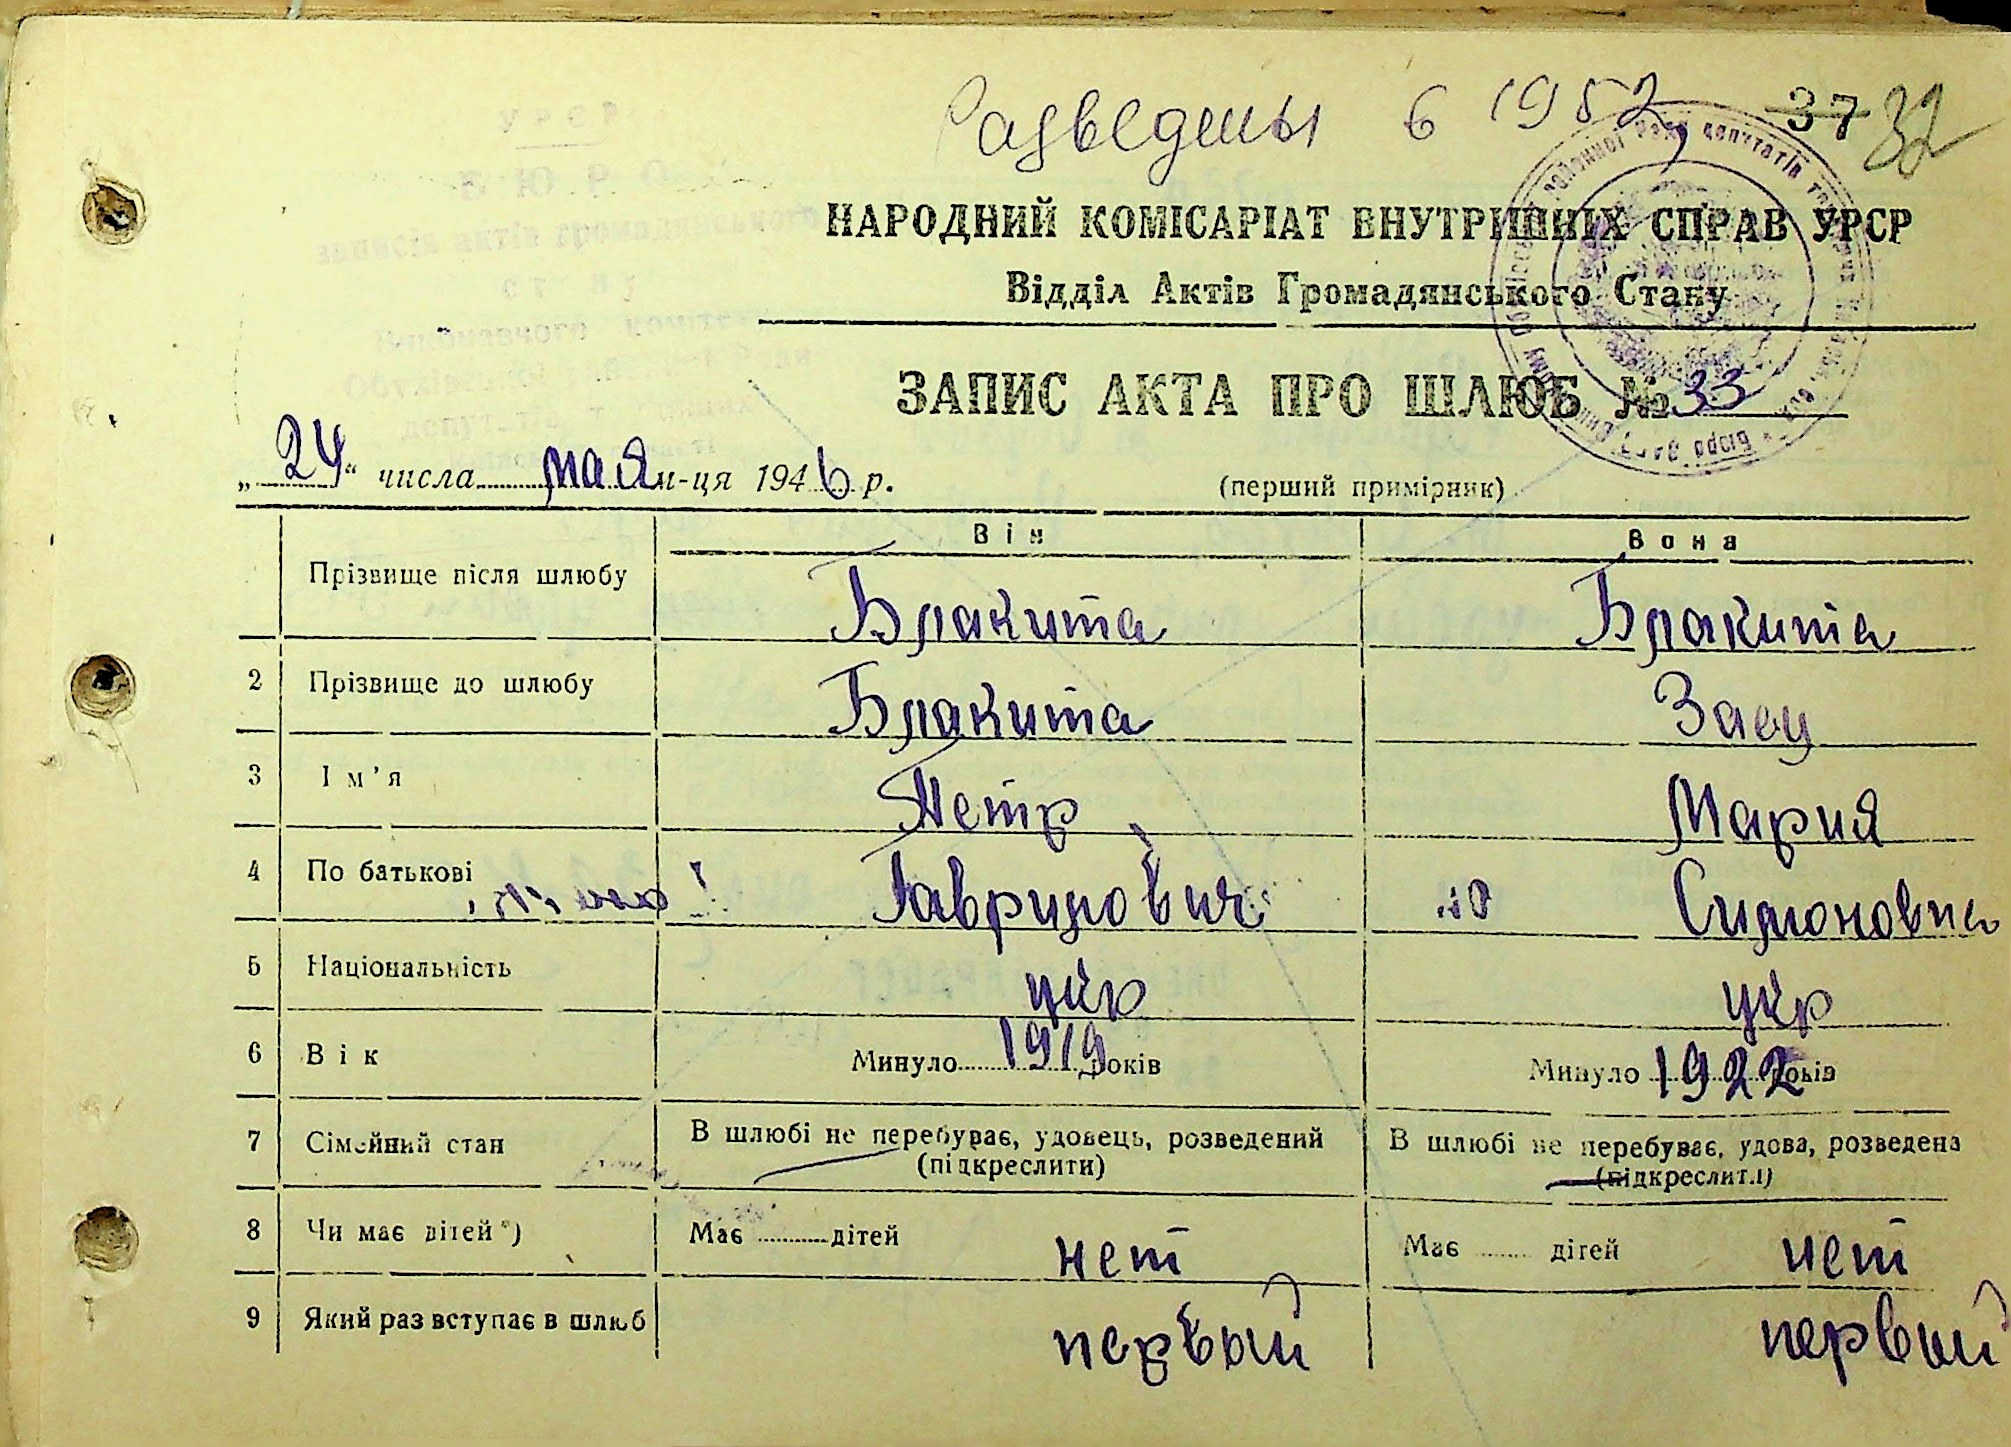 Разведены в 1952
37 32
НАРОДНИЙ КОМІСАРІАТ ВНУТРІШНІХ СПРАВ УРСР
Відділ Актів Громадянського Стану
ЗАПИС АКТА ПРО ШЛЮБ № 33
„24“ числа мая м-ця 1946 р. (перший примірник)
Він Вона
Прізвище після шлюбу Бракита Бракита
2 Прізвище до шлюбу Бракита Заец
3 Ім’я Петр Мария
4 По батькові Гаврилович Симоновна
5 Національність укр укр
6 Вік Минуло 1919 років Минуло 1922 років
7 Сімейний стан В шлюбі не перебуває, удовець, розведений В шлюбі не перебуває, удова, розведена
(підкреслити) (підкреслити)
8 Чи має дітей*) Має дітей нет Має дітей нет
9 Який раз вступає в шлюб первый первый